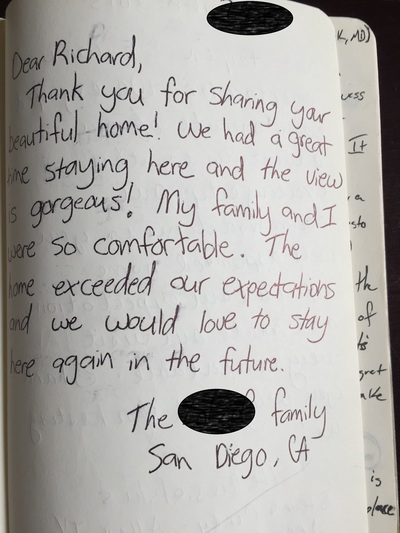 Dear Richard,
Thank you for sharing your
beautiful home! We had a great
time staying here and the view
is gorgeous! My family and I
were so comfortable. The
home exceeded our expectations
and we would love to stay
here again in the future.
The family
San Diego, CA
K, MD)
It
a
th
of
is
place